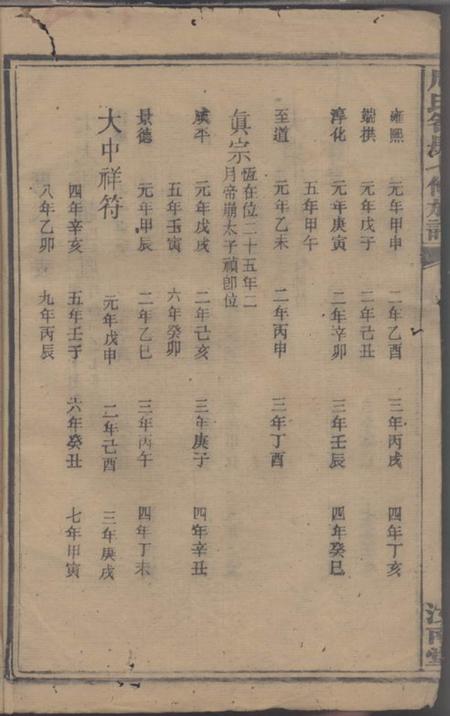 雍熙 元年甲申 二年乙酉 三年丙戌 四年丁亥
端拱 元年戊子 二年己丑
淳化 元年庚寅 二年辛卯 三年壬辰 四年癸巳
五年甲午
至道 元年乙未 二年丙申 三年丁酉
眞宗 恆在位二十五年二
月帝崩太子禎卽位
咸平 元年戊戌 二年己亥 三年庚子 四年辛丑
五年壬寅 六年癸卯
景德 元年甲辰 二年乙巳 三年丙午 四年丁未
大中祥符 元年戊申 二年己酉 三年庚戌
四年辛亥 五年壬子 六年癸丑 七年甲寅
八年乙卯 九年丙辰